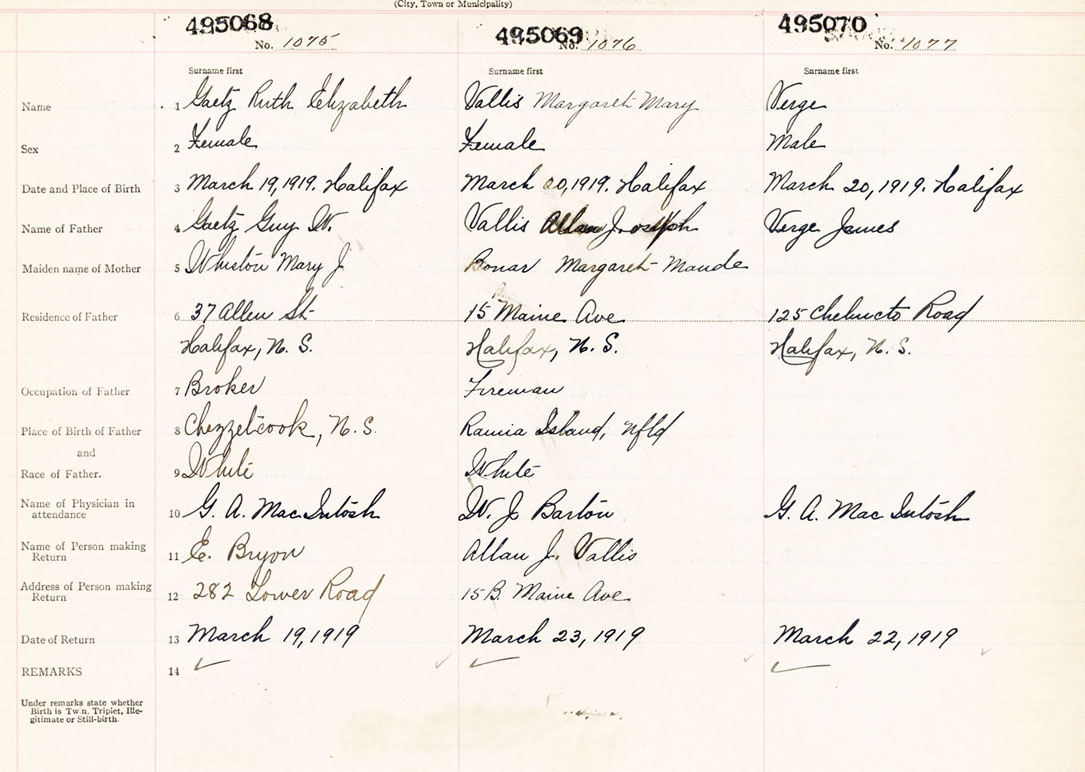 (City, Town or Municipality)
495068 495069 495070
No. 1075 No. 1076 No. 1077
Surname first Surname first Surname first
Name 1 Gaetz Ruth Elizabeth Vallis Margaret Mary Verge
Sex 2 Female Female Male
Date and Place of Birth 3 March 19, 1919. Halifax March 20, 1919. Halifax March 20, 1919. Halifax
Name of Father 4 Gaetz Guy W. Vallis Allan Joseph Verge James
Maiden name of Mother 5 Whiston Mary J Bonar Margaret Maude
Residence of Father 6 37 Allen St 15 Maine Ave 125 Chebucto Road
Halifax, N. S. Halifax, N. S. Halifax, N. S.
Occupation of Father 7 Broker Fireman
Place of Birth of Father 8 Chezzetcook, N. S. Ramia Island, Nfld
and
Race of Father. 9 White White
Name of Physician in
attendance 10 G. A. MacIntosh W. J. Barton G. A. MacIntosh
Name of Person making
Return 11 E. Bryon Allan J. Vallis
Address of Person making
Return 12 282 Lower Road 15B Maine Ave
Date of Return 13 March 19, 1919 March 23, 1919 March 22, 1919
REMARKS 14
Under remarks state whether
Birth is Twin, Triplet, Ille-
gitimate or Still-birth.